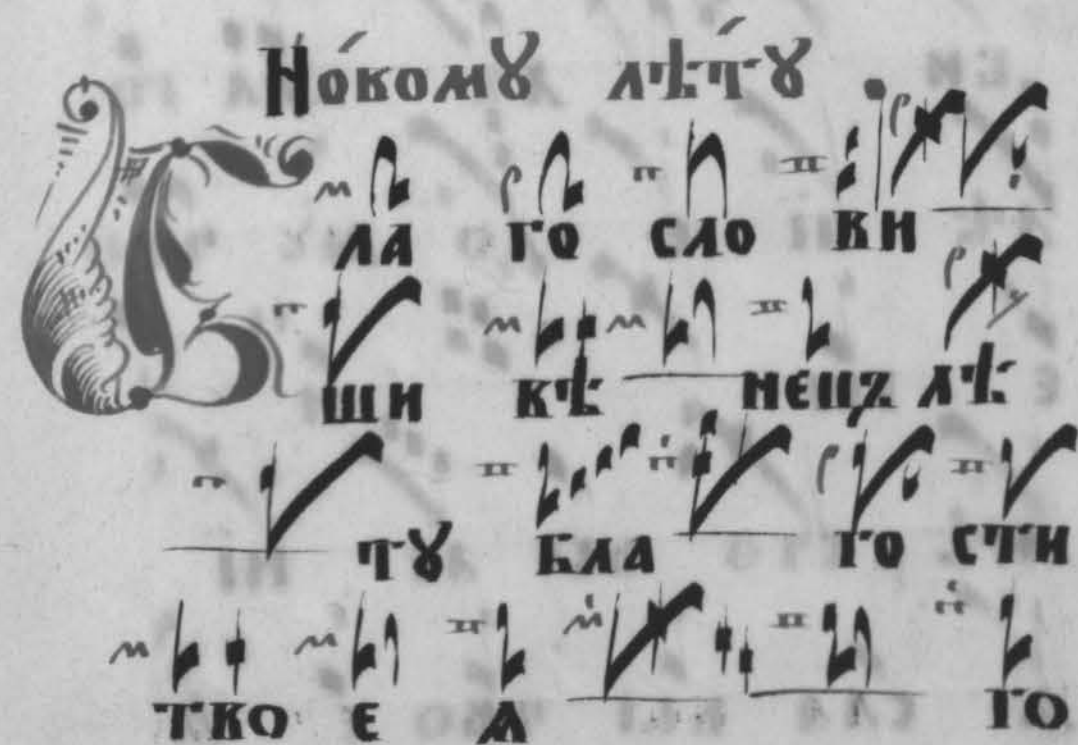 Но́вомꙋ лѣ́тꙋ
Бла го сло ви
ши вѣ нецъ лѣ
тꙋ бла го сти
тво е ѧ го